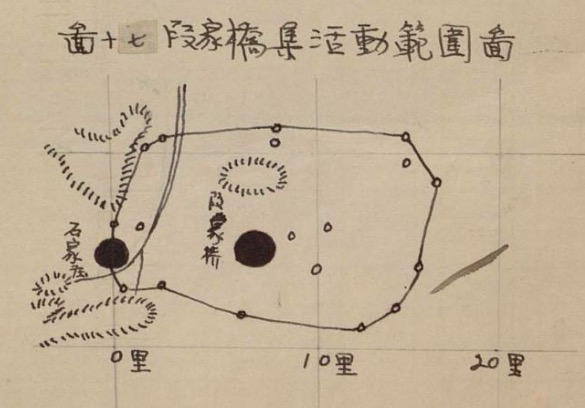 啚十七 段家橋集活動範圍啚
段家橋
石家莊
0里
10里
20里